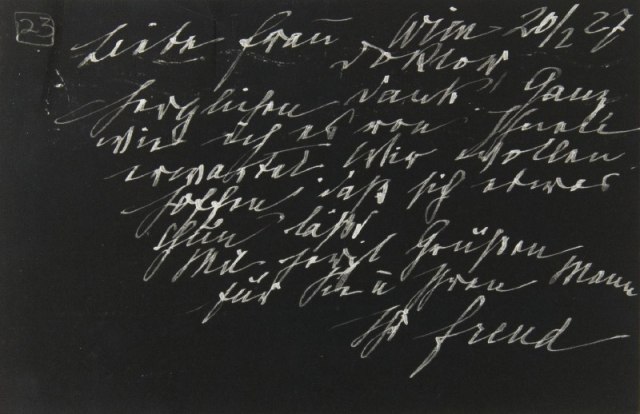 23
Wien 20/2 27
Liebe Frau Doktor
Herzlichen Dank Ganz
wie ich es von Ihnen
erwartet. Wir wollen
hoffen, daß sich etwas
thun läßt
Mit herzl Grüßen
für Sie u Ihren Mann
Ihr Freud